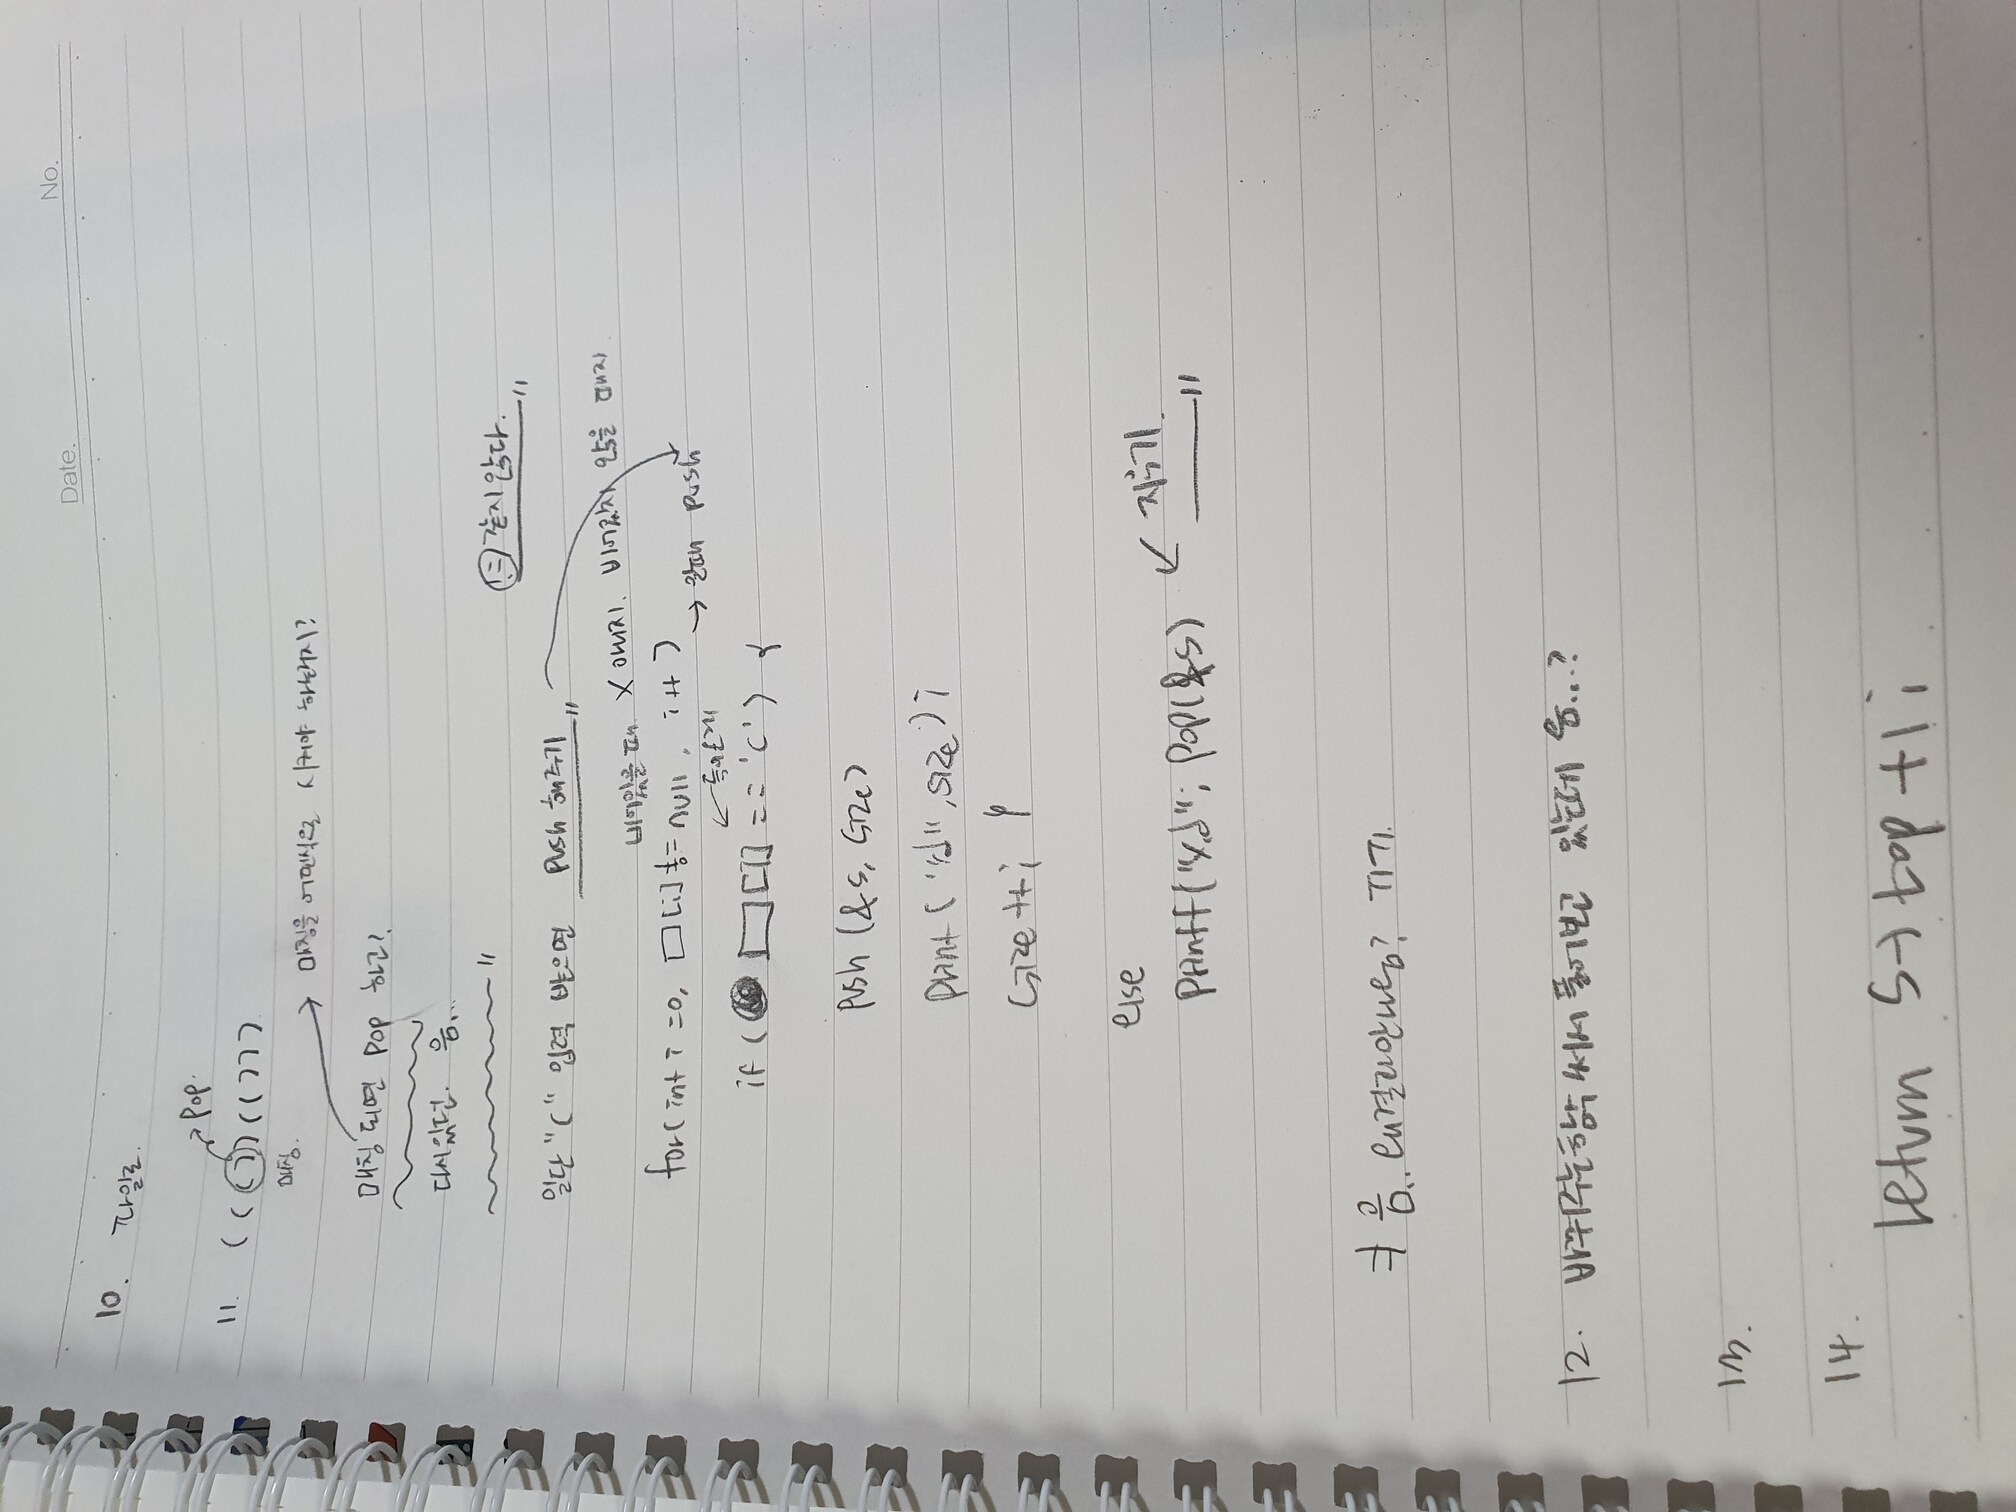 Date. No.
10. 파일로.
pop.
11. ( ( ( ) ) ( ( ) ) )
매칭.
매칭을 어떤식으로 시켜야 하는거지?
매칭되면 pop 하고?
음...
!= 같지 않다.
일단 "(" 입력 받으면 push 해주기
비어있을 때 X 아니지. 비어있지 않을 때지
for(int i =0, □[i] != null, i++)
일때 push
if ( □[i] == '(') {
push (&s, size)
print ("%d", size);
size ++; }
else
printf("%d"; pop(&s)
지우기.
왜 결과 안나옴? ㅠㅠ.
12. 바꿔주는 함수 써서 풀어보고 있는데 음...?
13.
14.
return s→top +1;